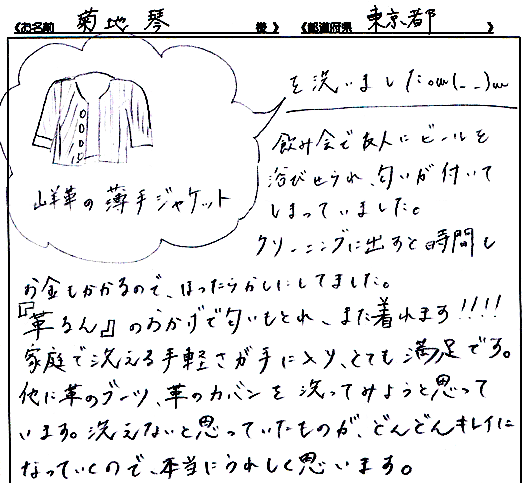 《お名前 菊地 琴 様》 《都道府県 東京都 》
を洗いました。m(_ _)m
山羊革の薄手ジャケット
飲み会で友人にビールを
浴びせられ、匂いが付いて
しまっていました。
クリーニングに出すと時間も
お金もかかるので、ほったらかしにしてました。
『革るん』のおかげで匂いもとれ、また着れます!!!!
家庭で洗える手軽さが手に入り、とても満足です。
他に革のブーツ、革のカバンを洗ってみようと思って
います。洗えないと思っていたものが、どんどんキレイに
なっていくので、本当にうれしく思います。